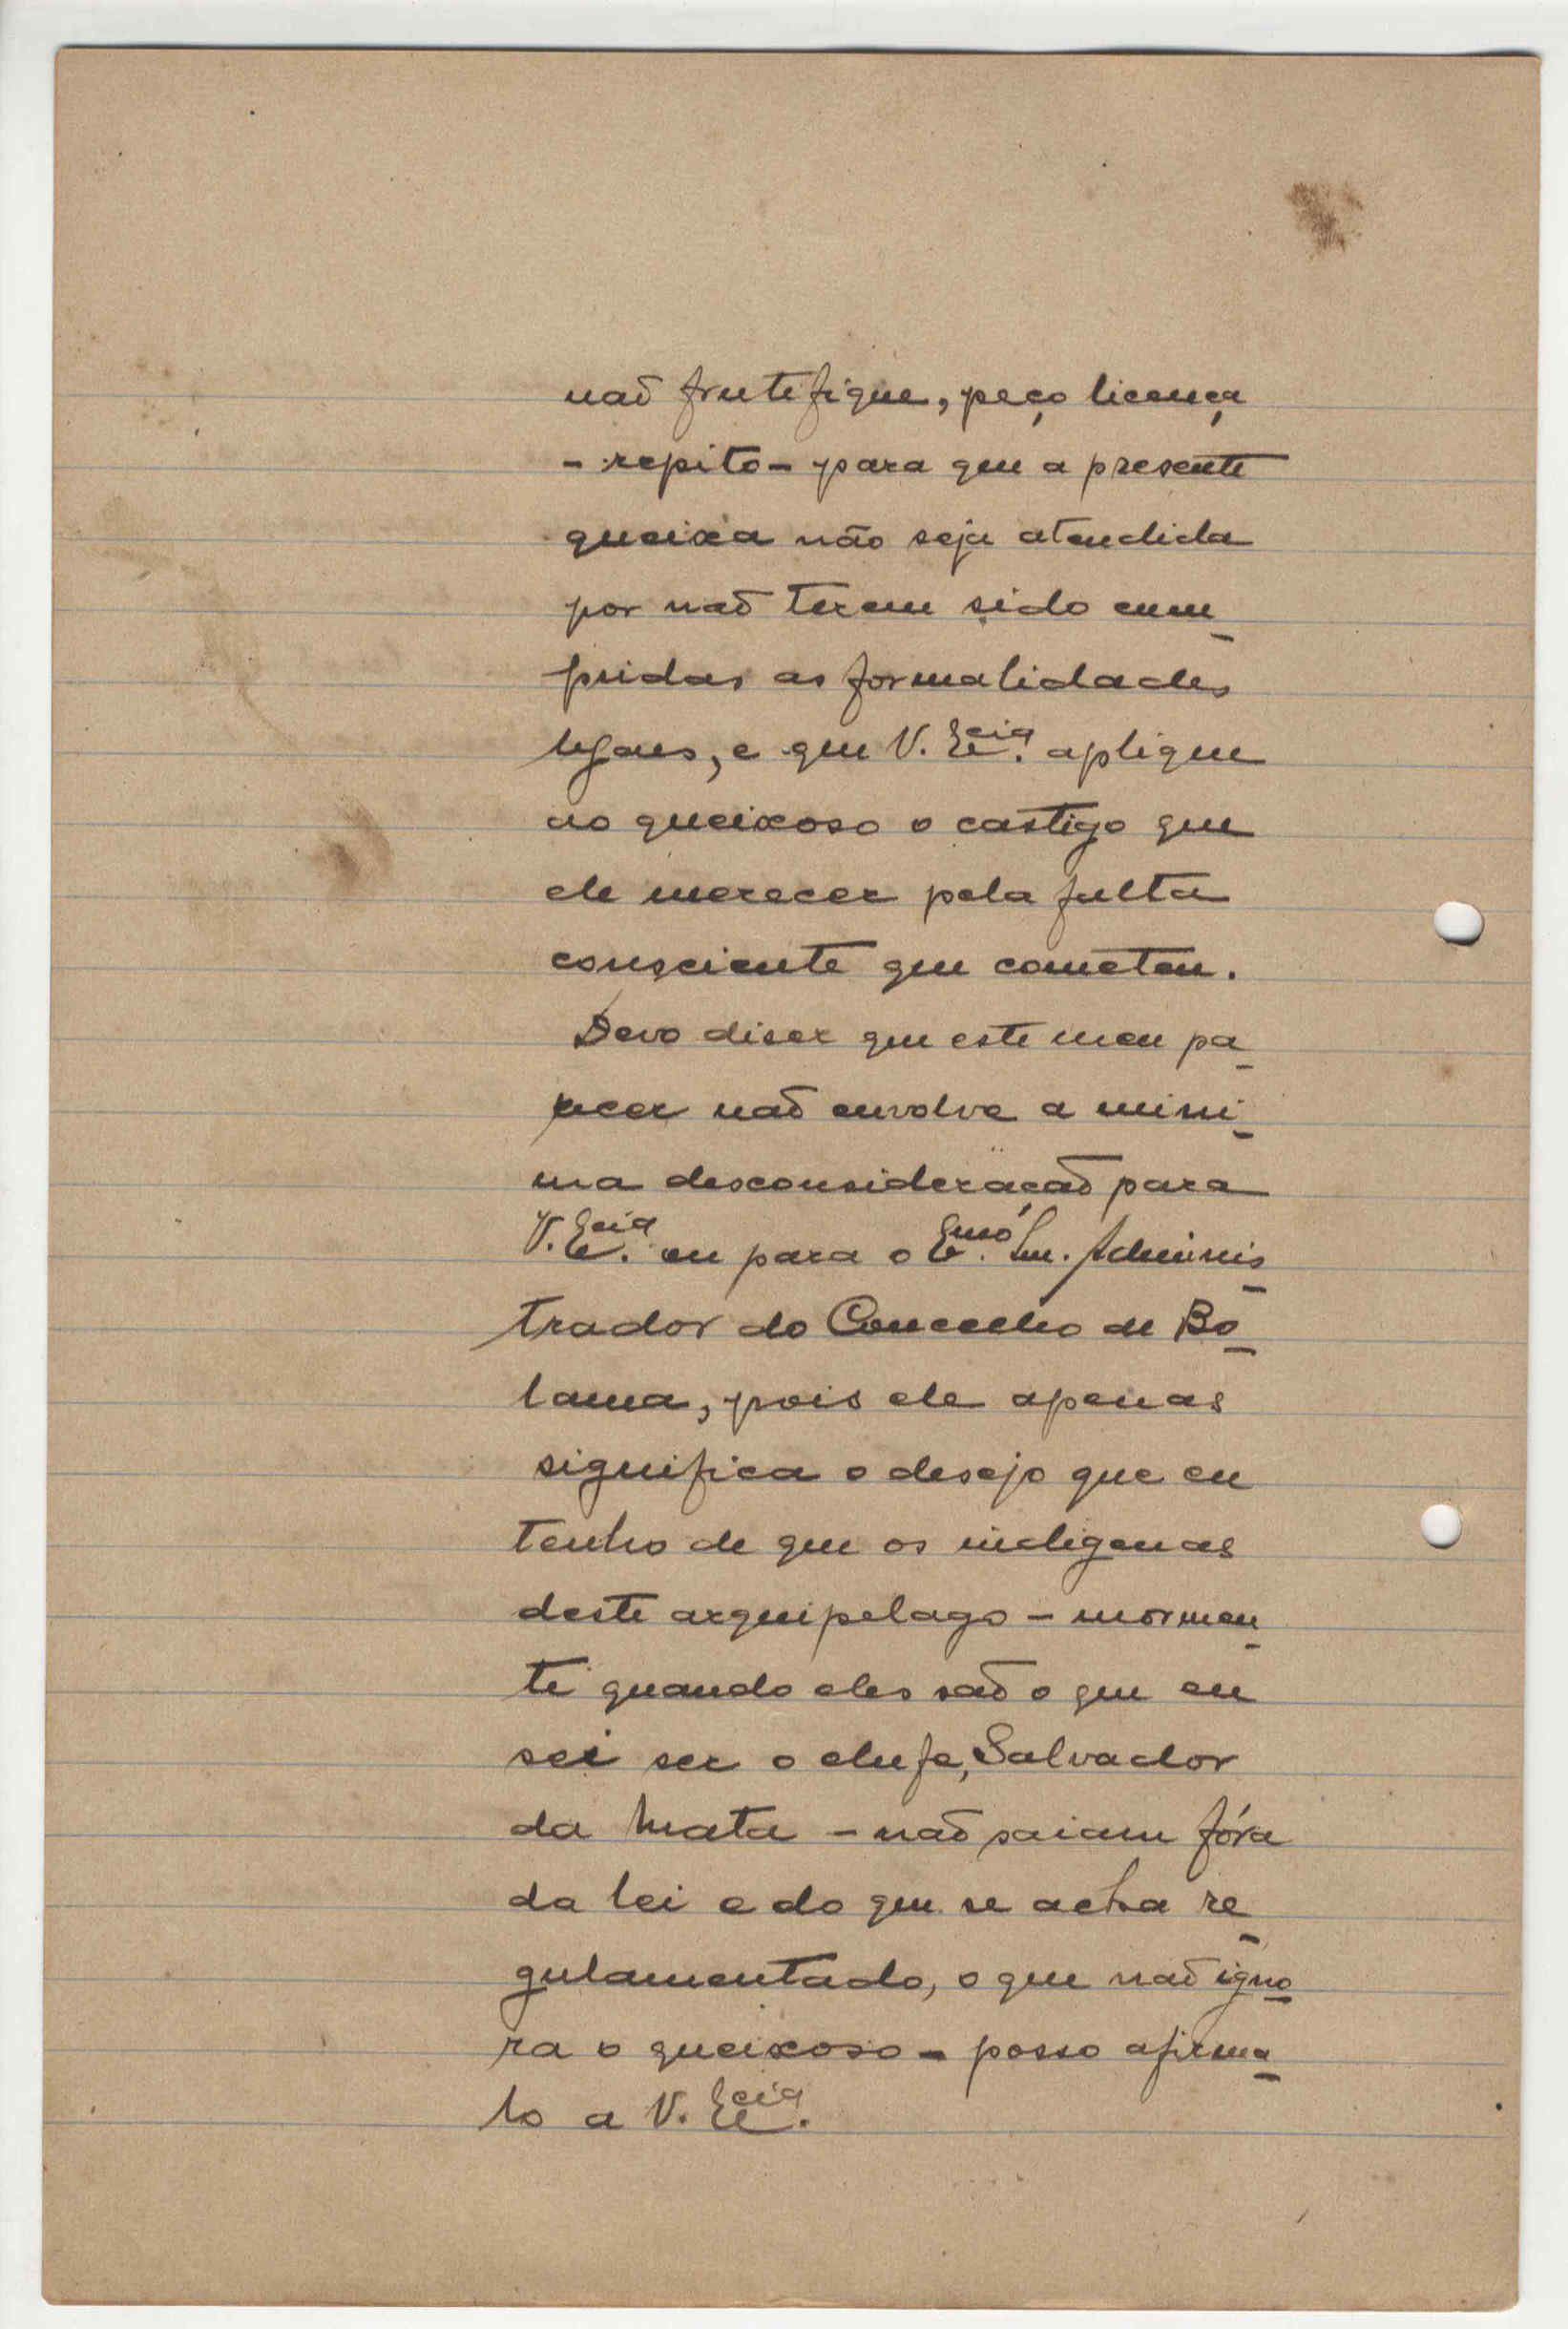 não frutefique, peço licença
- repito - para que a presente
queixa não seja atendida
por não terem sido cum-
pridas as formalidades
legaes, e que V. Excia. aplique
ao queixoso o castigo que
ele merecer pela falta
consciente que cometeu.
Devo diser que este meu pa-
recer não envolve a mini-
ma desconsideração para
V. Excia. ou para o Exmo. Snr. Adminis-
trador do Concelho de Bo-
lama, pois ele apenas
significa o desejo que eu
tenho de que os indigenas
deste arquipelago - mormen-
te quando eles são o que eu
sei ser o chefe, Salvador
da Mata - não saiam fóra
da lei e do que se acha re-
gulamentado, o que não igno-
ra o queixoso - posso afirma-
lo a V. Excia.